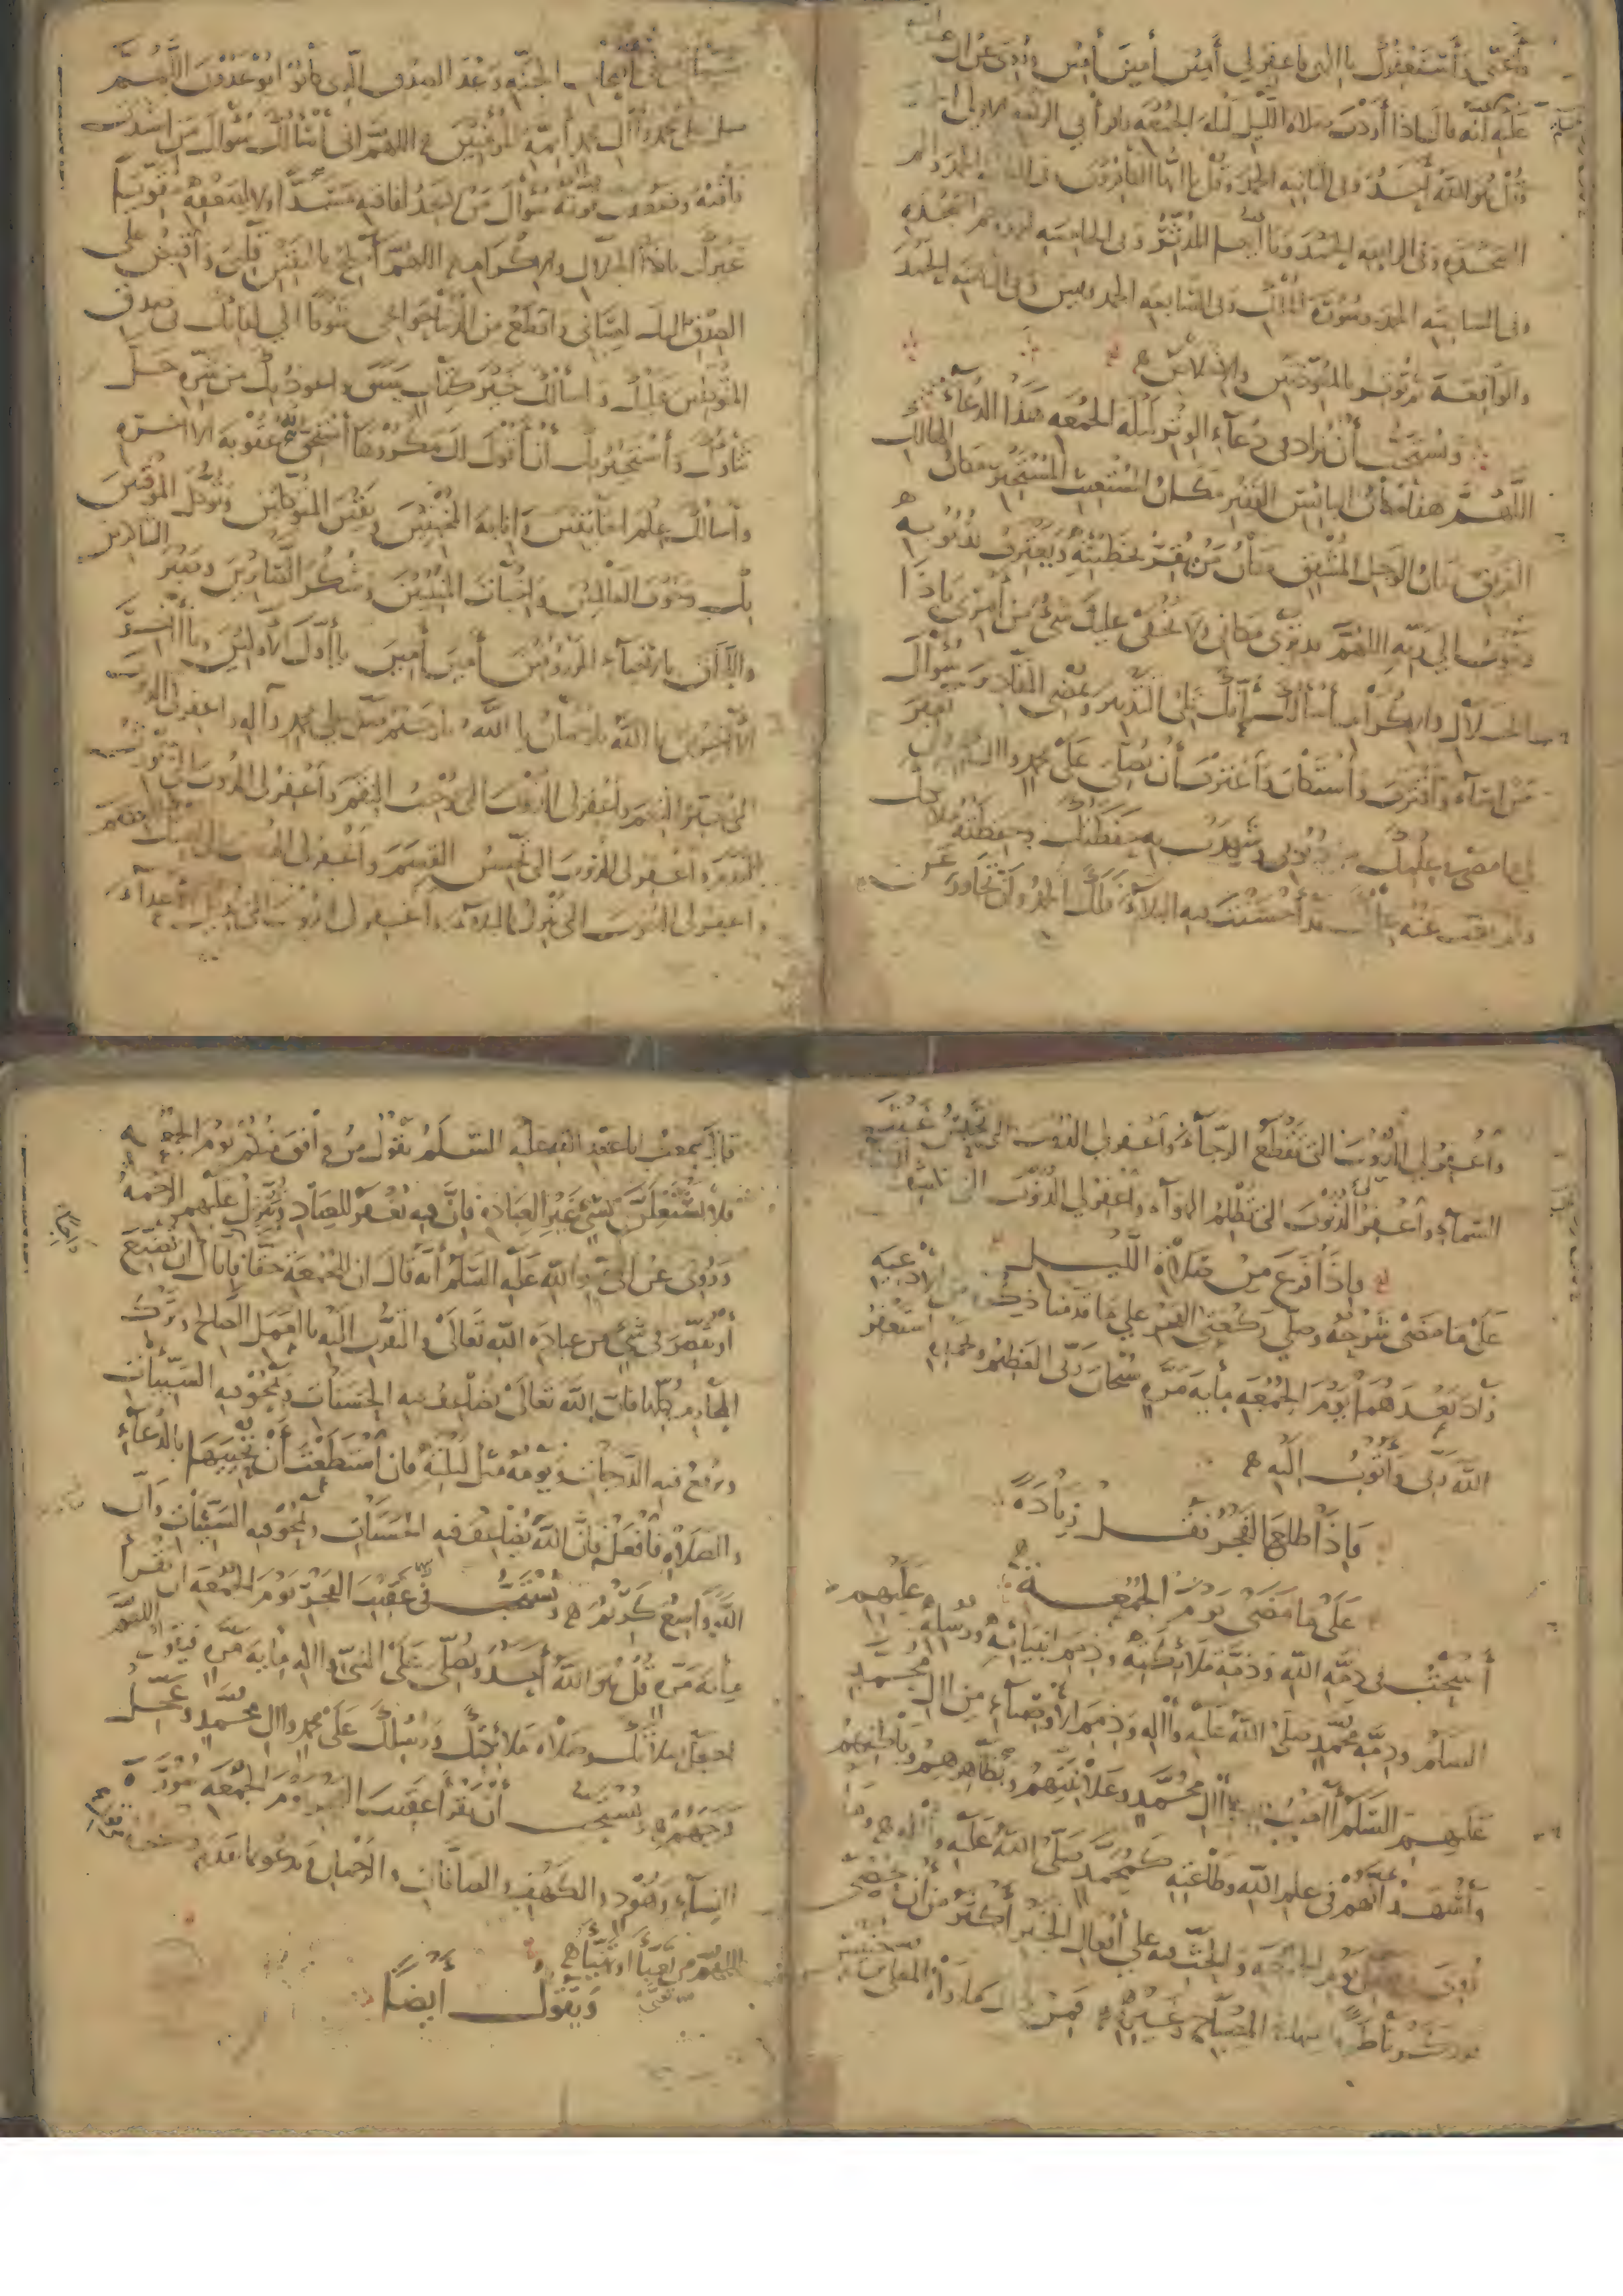 وأغنني وأستغفرك يا إلهي فاغفر لي أمين أمين أمين وروي عن
عليه أنه قال إذا أردت صلاة الليل ليلة الجمعة فاقرأ في الركعة الأولى
قل هو الله أحد وفي الثانية الحمد وقل يا أيها الكافرون وفي الثالثة الحمد والم
السجدة وفي الرابعة الحمد ويا أيها المدثر وفي الخامسة الحمد وحم السجدة
وفي السادسة الحمد وسورة الملك وفي السابعة الحمد ويس وفي الثامنة الحمد
والواقعة ثم توتر بالمعوذتين والإخلاص
ويستحب أن يزاد في دعاء الوتر ليلة الجمعة هذا الدعاء
اللهم هذا مكان البائس الفقير مكان المستغيث المستجير مكان الهالك
الغريق مكان الوجل المشفق مكان من يقر بخطيئته ويعترف بذنوبه
ويتوب إلى ربه اللهم قد ترى مكاني ولا يخفى عليك شيء من أمري يا ذا
الجلال والإكرام أسألك بأنك تلي التدبير وتمضي المقادير سؤال
من أساء واقترف واستكان واعترف أن تصلي على محمد وآل
ما مضى في علمك من ذنوبي وشهدت به حفظتك وحفظته ملائكتك
ولم يغب عنه علمك قد أحسنت فيه البلاء فلك الحمد وأن تجاوز عن
سيئاتي في أصحاب الجنة وعد الصدق الذي كانوا يوعدون اللهم
صل على محمد وآل محمد أئمة المؤمنين اللهم إني أسألك سؤال من اشتدت
فاقته وضعفت قوته سؤال من لا يجد لفاقته مسدا ولا لضعفه مقويا
غيرك يا ذا الجلال والإكرام اللهم أصلح باليقين قلبي واقبض على
الصدق إليك لساني واقطع من الدنيا حوائجي شوقا إلى لقائك في صدق
المتوكلين عليك وأسألك خير كتاب سبق وأعوذ بك من شره جل
ثناؤك وأستجير بك أن أقول لك مكروها أستحق به عقوبة الآخرة
وأسألك علم الخائفين وإنابة المخبتين ويقين المتوكلين وتوكل الموقنين
بك وخوف العالمين وإخبات المنيبين وشكر الصابرين وصبر الشاكرين
واللحاق بالأحياء المرزوقين أمين أمين يا أول الأولين ويا آخر
الآخرين يا الله يا رحمان يا الله يا رحيم صل على محمد وآله واغفر لي الذنوب
التي تغير النعم واغفر لي الذنوب التي توجب النقم واغفر لي الذنوب التي تورث
الندم واغفر لي الذنوب التي تحبس القسم واغفر لي الذنوب التي تهتك العصم
واغفر لي الذنوب التي تنزل البلاء واغفر لي الذنوب التي تديل الأعداء
واغفر لي الذنوب التي تقطع الرجاء واغفر لي الذنوب التي تحبس غيث
السماء واغفر لي الذنوب التي تظلم الهواء واغفر لي الذنوب التي تكشف الغطاء
فإذا فرغ من صلاة الليل
على ما مضى شرحه وصلى ركعتي الفجر على ما قدمنا ذكره من الأدعية
زاد بعدهما يوم الجمعة مأية مرة سبحان ربي العظيم وبحمده أستغفر
الله ربي وأتوب إليه
فإذا طلع الفجر نقل زيادة
على ما مضى يوم الجمعة
أصبحت في ذمة الله وذمة ملائكته وذمم أنبيائه ورسله عليهم
السلم وذمة محمد صلى الله عليه وآله وذمم الأوصياء من آل محمد
عليهم السلم آمنت بسر آل محمد وعلانيتهم وظاهرهم وباطنهم
وأشهد أنهم في علم الله وطاعته كمحمد صلى الله عليه وآله
روي في فضل يوم الجمعة والحث فيه على أفعال الخير أكثر من أن يحصى
قال سمعت أبا عبد الله عليه السلم يقول من وافق منكم يوم الجمعة
فلا يشتغلن بشيء غير العبادة فإن فيه يغفر للعباد وتنزل عليهم الرحمة
وروي عن أبي عبد الله عليه السلم أنه قال إن للجمعة حقا فإياك أن تضيع
أو تقصر في شيء من عبادة الله تعالى والتقرب إليه بالعمل الصالح وترك
المحارم كلها فإن الله تعالى يضاعف فيه الحسنات ويمحو فيه السيئات
ويرفع فيه الدرجات ويومه مثل ليلته فإن استطعت أن تحييها بالدعاء
والصلاة فافعل فإن الله يضاعف فيه الحسنات ويمحو فيه السيئات وأن
الله واسع كريم ويستحب في عقيب الفجر يوم الجمعة أن يقرأ
مأية مرة قل هو الله أحد ويصلي على النبي وآله مأية مرة فيقول اللهم
اجعل صلاتك وصلاة ملائكتك ورسلك على محمد وآل محمد وعجل
فرجهم ويستحب أن يقرأ عقيب الفجر يوم الجمعة سورة
النساء وهود والكهف والصافات والرحمان ويدعو بما تقدم
اللهم من تعبأ وتهيأ
ويقول أيضا